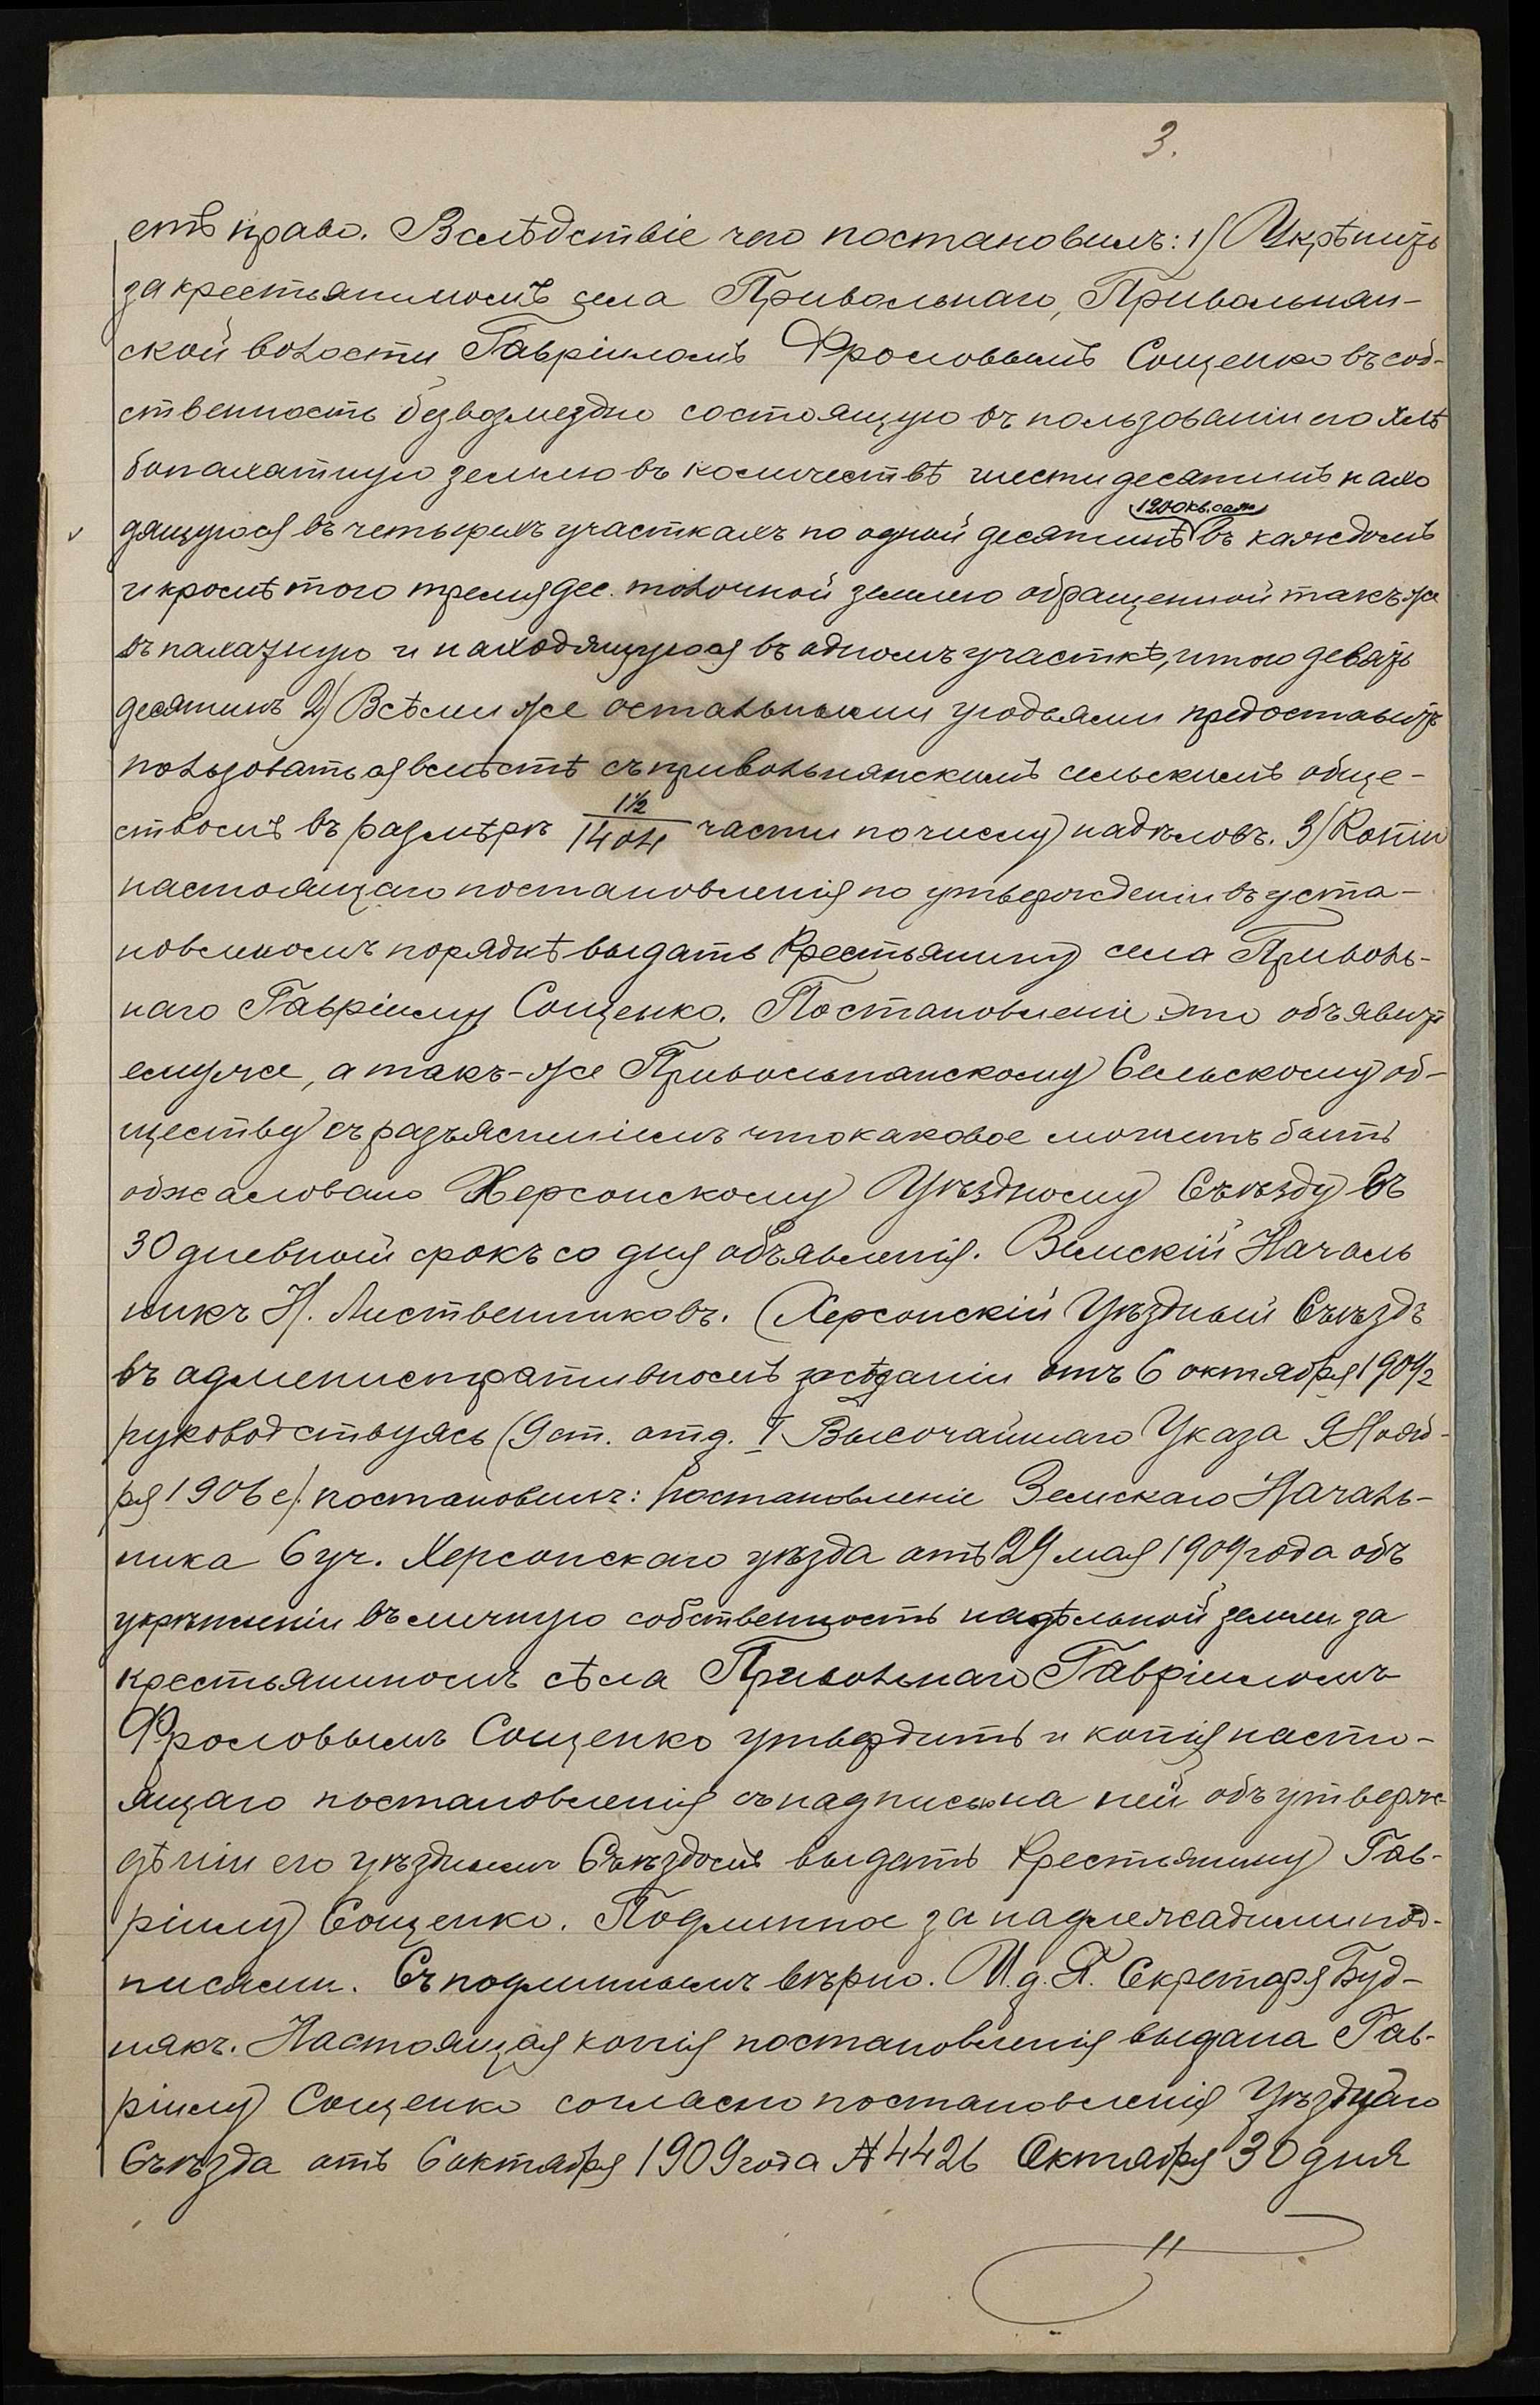 3.
етъ право. Вслѣдствіе чего постановилъ: 1) Укрѣпить
за крестьяниномъ села Привольнаго, Привольнян-
ской волости Гавріиломъ Фроловымъ Сощенко въ соб-
ственность безвозмездно состоящую въ пользованіи его хлѣ
бопахатную землю въ количествѣ шести десятинъ нахо
1200 кв. саж
дящуюся въ четырехъ участкахъ по одной десятинѣ въ каждомъ
и кромѣ того тремя дес. толочной землею обращенной такъ же
въ пахатную и находящуюся въ одномъ участкѣ, итого девять
десятинъ 2) Всѣми же остальными угодьями предоставить
пользоваться вмѣстѣ съ привольнянскимъ сельскимъ обще-
ствомъ въ размѣрѣ 1½/1404 части по числу надѣловъ. 3) Копію
настоящаго постановленія по утвержденіи въ уста-
новленномъ порядкѣ выдать крестьянину села Приволь-
наго Гавріилу Сощенко. Постановленіе это объявить
ему же, а такъ-же Привольнанскому Сельскому об-
ществу съ разъясненіемъ что каковое можетъ быть
обжаловано Херсонскому Уѣздному Съѣзду въ
30 дневный срокъ со дня объявленія. Земскій Началь
никъ Н. Лиственниковъ. Херсонскій Уѣздный Съѣздъ
въ админстративномъ засѣданіи отъ 6 октября 1909 г
руководствуясь (9 ст. отд. I Высочайшаго Указа 9 Нояб-
ря 1906 г). постановилъ: постановленіе Земскаго Началь-
ника 6 уч. Херсонскаго уѣзда отъ 29 мая 1909 года объ
укрѣпленіи въ личную собственность надѣльной земли за
крестьяниномъ сѣла Привольнаго Гавріиломъ
Фроловымъ Сощенко утвердить и копія насто-
ящаго постановленія съ надписью на ней объ утверж-
дѣніи его уѣзднымъ Съѣздомъ выдать крестьянину Гав-
ріилу Сощенко. Подлинное за надлежадими под-
писями. Съ подлиннымъ вѣрно. И. д. Секретаря Буд-
някъ. Настоящая копія постановленія выдана Гав-
ріилу Сощенко согласно постановленія Уѣзднаго
Съѣзда отъ 6 октября 1909 года № 4426 Октября 30 дня